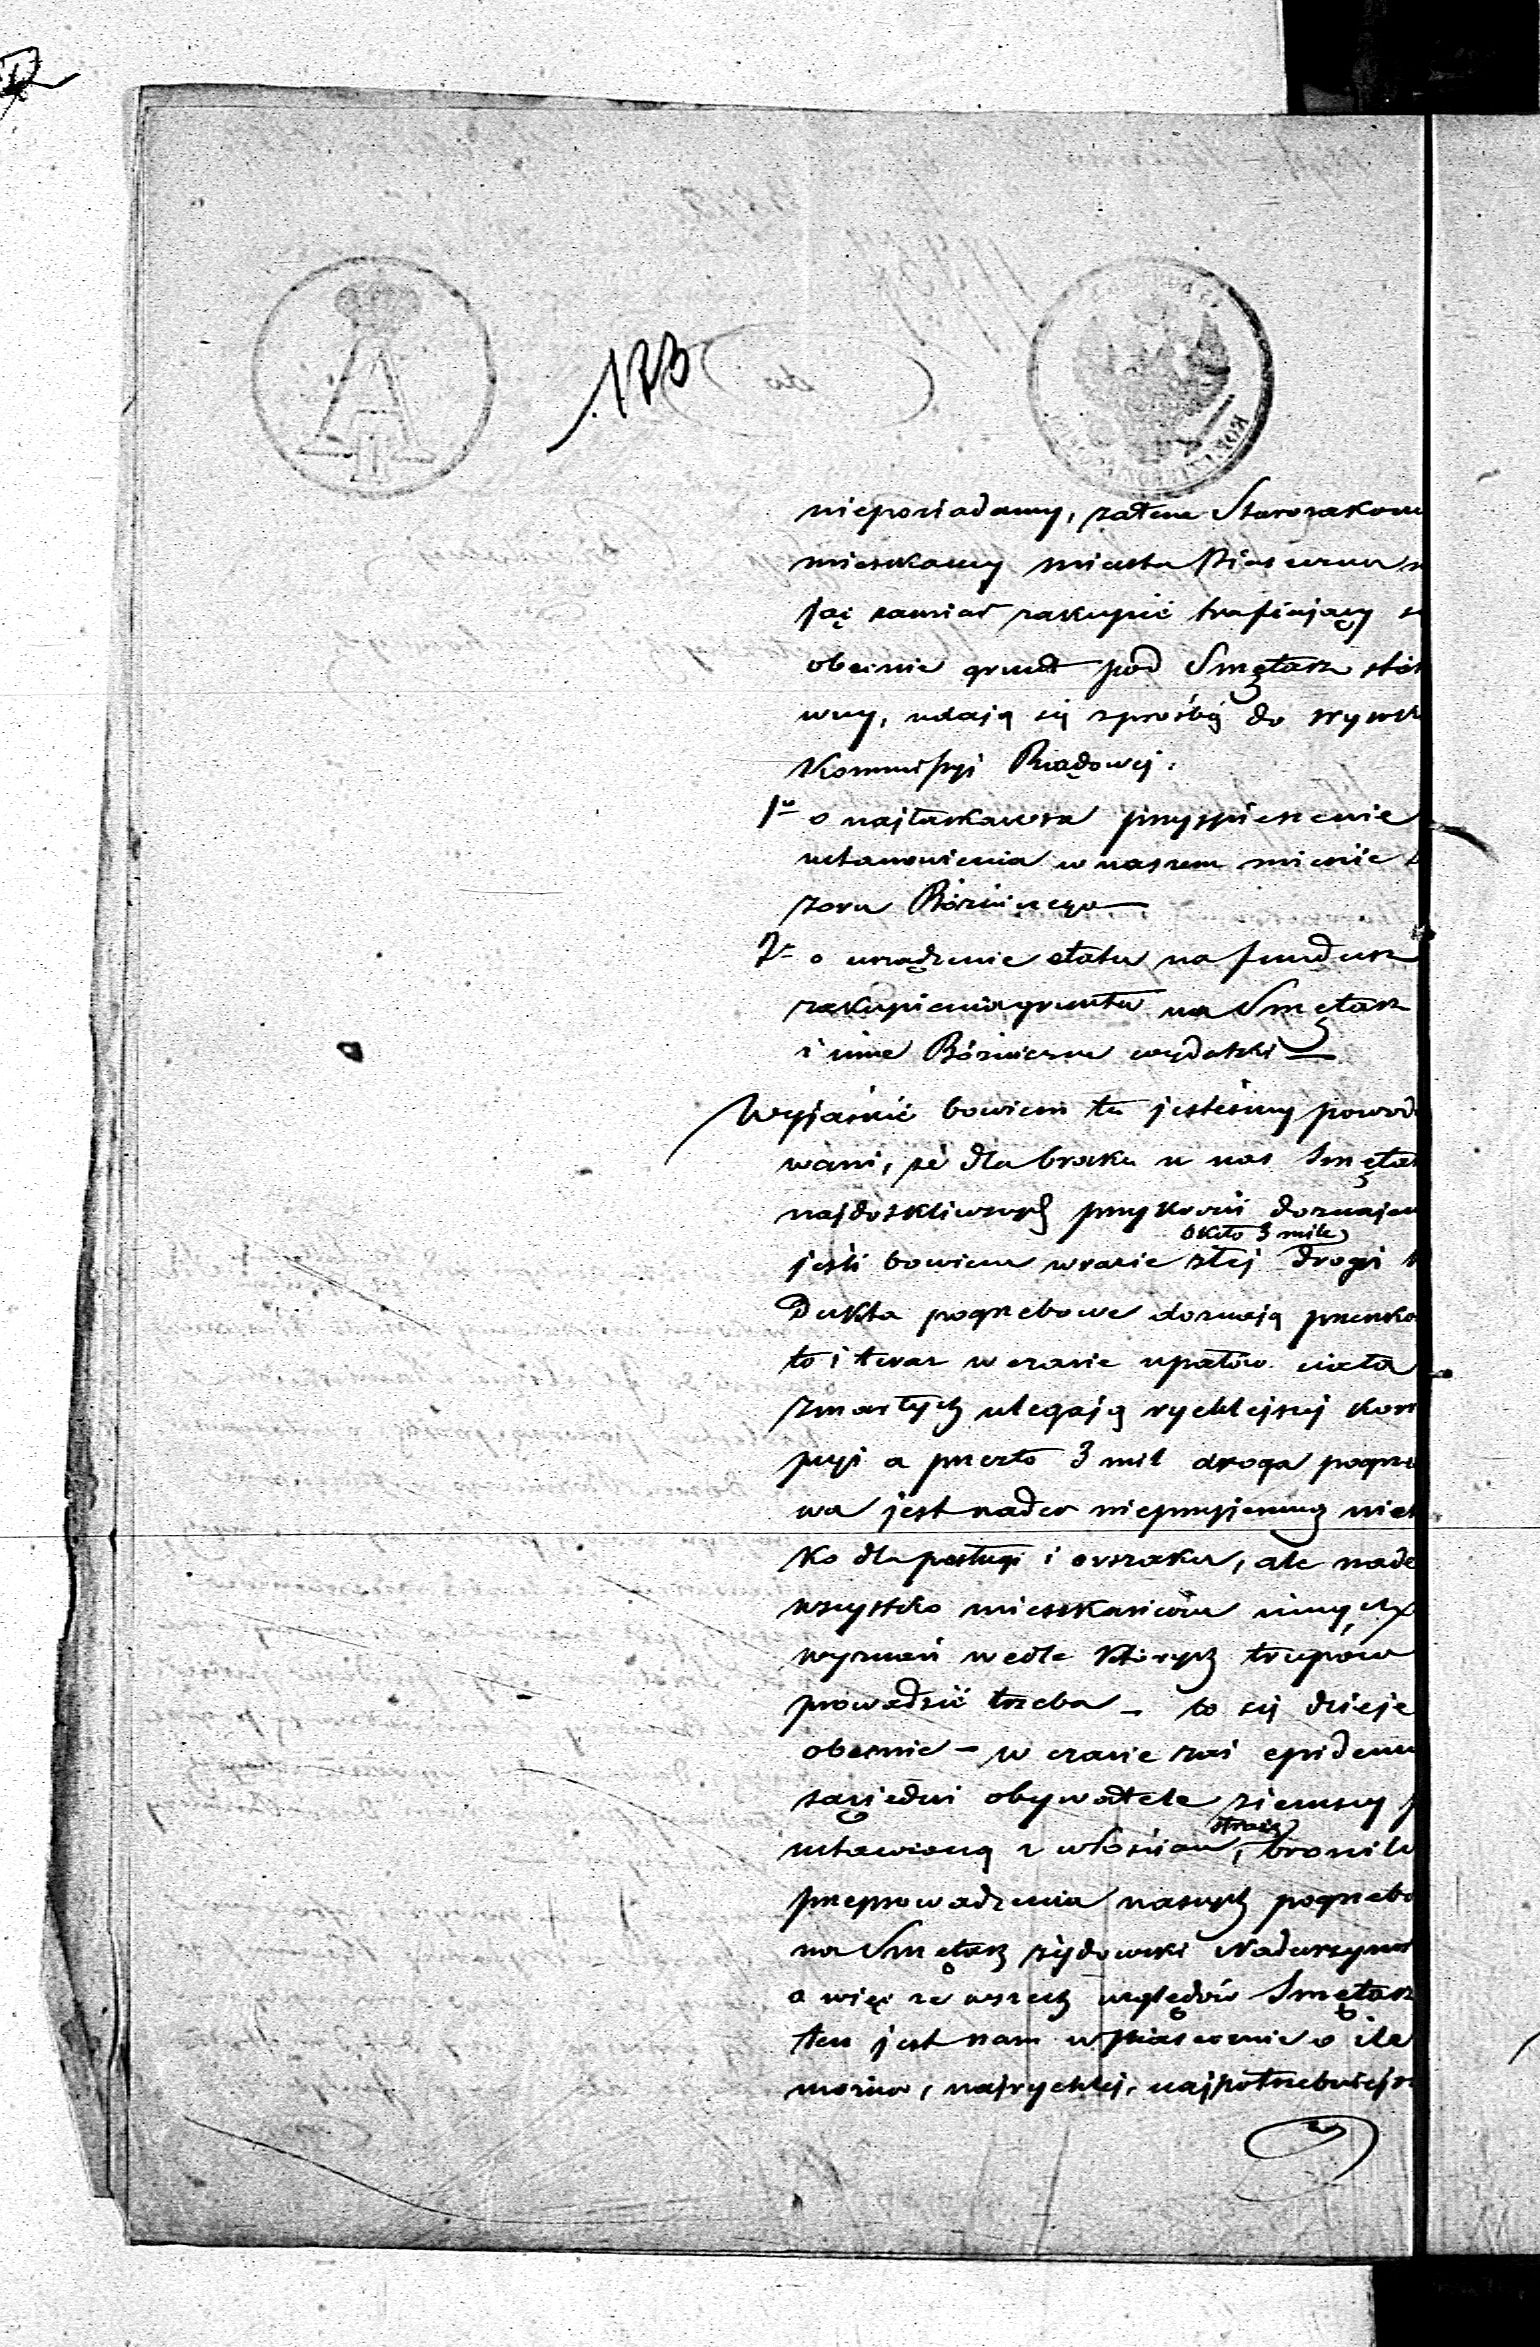 173
nieposiadamy, zatem Starozakonn
mieszkańcy miasta Piaseczna m
jąc zamiar zakupić trafiający s
obecnie grunt pod Smętarz stós
wny, udają się z prośbą do Wysok
Kommissyi Rządowej.
1o o najłaskawsza przyspieszenie
ustanowienia w naszem mieście
zoru Bóżniczego
2o o urządzenie etatu na fundusz
zakupienia gruntu na Smętarz
i inne Bóżniczne wydatki
Wyjaśnić bowiem tu jesteśmy powodo
wani, że dla braku u nas Smętar
najdotkliwszych przykrości doznajem
jeśli bowiem w razie złej drogi
około 3 mile
Dukta pogrzebowe doznają przeszko
to i teraz w czasie upałów ciała
zmarłych ulegają rychlejszej korr
pcyi a przeto 3 mil droga pogrze
wa jest nader nieprzyjemną niet
ko dla posługi i orszaku, ale nade
wszystko mieszkańców innych
wyznań wedle których trupów
prowadzić trzeba – to się dzieje
obecnie – w czasie zaś epidemi
sąsiedni obywatele ziemscy p
ustawioną z włościan, bronili
strażą
przeprowadzenia naszych pogrzebó
na Smętarz żydowski Nadarzyns
a więc ze wszech względów Smętarz
ten jest nam w Piasecznie o ile
można, najrychlej, najpotrzebniejsz